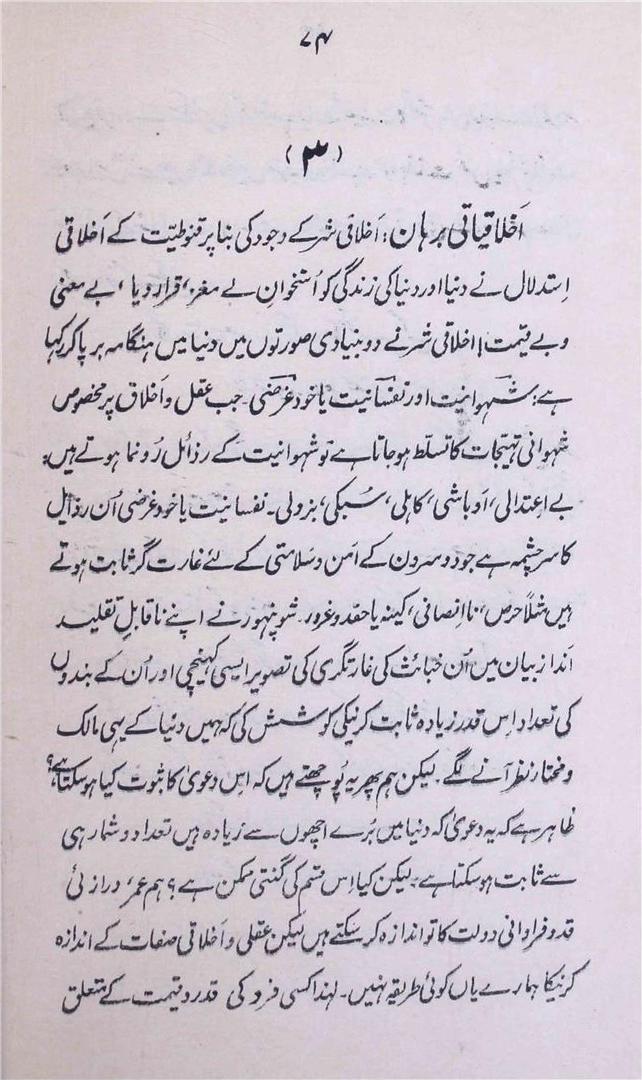 ۷۴
(۳)
اَخلاقیاتی برہان: اَخلاقی شر کے وجود کی بنا پر قنوطیّت کے اَخلاقی
اِستدلال نے دنیا اور دنیا کی زندگی کو اُستخوانِ بے مغز، قرار دیا، بے معنی
و بے قیمت! اخلاقی شر نے دو بنیادی صورتوں میں دنیا میں ہنگامہ برپا کر رکھا
ہے: شہوانیت اور نفسانیت یا خود غرضی۔ جب عقل و اَخلاق پر مخصوص
شہوانی تہیّجات کا تسلّط ہو جاتا ہے تو شہوانیت کے رذائل رُونما ہوتے ہیں:
بے اِعتدالی، اَوباشی، کاہلی، سُبکی، بزدلی۔ نفسانیت یا خود غرضی اُن رذائل
کا سرچشمہ ہے جو دوسروں کے اَمن و سَلامتی کے لئے غارت گر ثابت ہوتے
ہیں مثلاً حرص، نااِنصافی، کینہ یا حقد و غرور۔ شوپنہور نے اپنے ناقابلِ تقلید
اَندازِ بیان میں اُن خبائث کی غارتگری کی تصویر ایسی کھینچی اور اُن کے بندوں
کی تعداد اِس قدر زیادہ ثابت کرنیکی کوشش کی کہ ہمیں دنیا کے یہی مالک
و مختار نظر آنے لگے۔ لیکن ہم پھر یہ پُوچھتے ہیں کہ اِس دعویٰ کا ثبوت کیا ہوسکتا ہے؟
ظاہر ہے کہ یہ دعویٰ کہ دنیا میں بُرے اچھوں سے زیادہ ہیں تعداد و شمار ہی
سے ثابت ہوسکتا ہے۔ لیکن کیا اِس قسم کی گنتی ممکن ہے؟ ہم عمر، درازئی
قد و فراوانی دولت کا تو اندازہ کرسکتے ہیں لیکن عقلی و اَخلاقی صفات کے اندازہ
کرنیکا ہمارے یاں کوئی طریقہ نہیں۔ لہٰذا کسی فرد کی قدر و قیمت کے متعلق